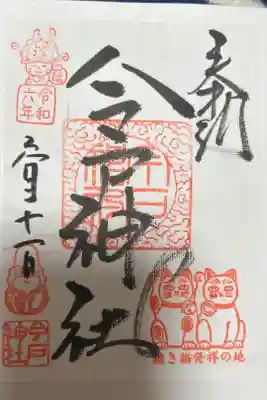 奉拝
今戸神社
令和
六年
十一日
今戸
神社
招き猫発祥の地